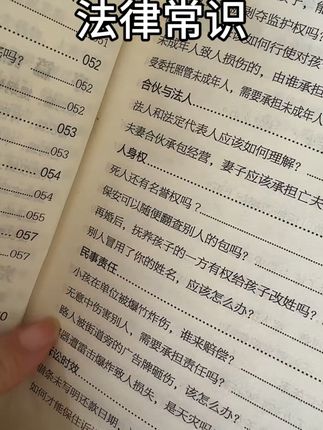 法律常识
剥夺监护权吗?
如何行使对孩
未成年人致人损伤的,由谁承
受委托照管未成年人,需要承担未成年人
合伙与法人
法人和法定代表人应该如何理解?
夫妻合伙承包经营,妻子应该承担亡夫
人身权
死人还有名誉权吗?
保安可以随便翻查别人的包吗?
再婚后,抚养孩子的一方有权给孩子改姓吗?
别人冒用了你的姓名,应该怎么办?
民事责任
小孩在单位被爆竹炸伤,谁来赔偿?
无意中伤害别人,需要承担责任吗?
路人被街道旁的广告牌砸伤,该怎么办
器遭雷击爆炸致人损失,是天灾
讼时效
借条未写明还款日期
如何才能保住诉
吗?
052
052
053
053
055
057
057